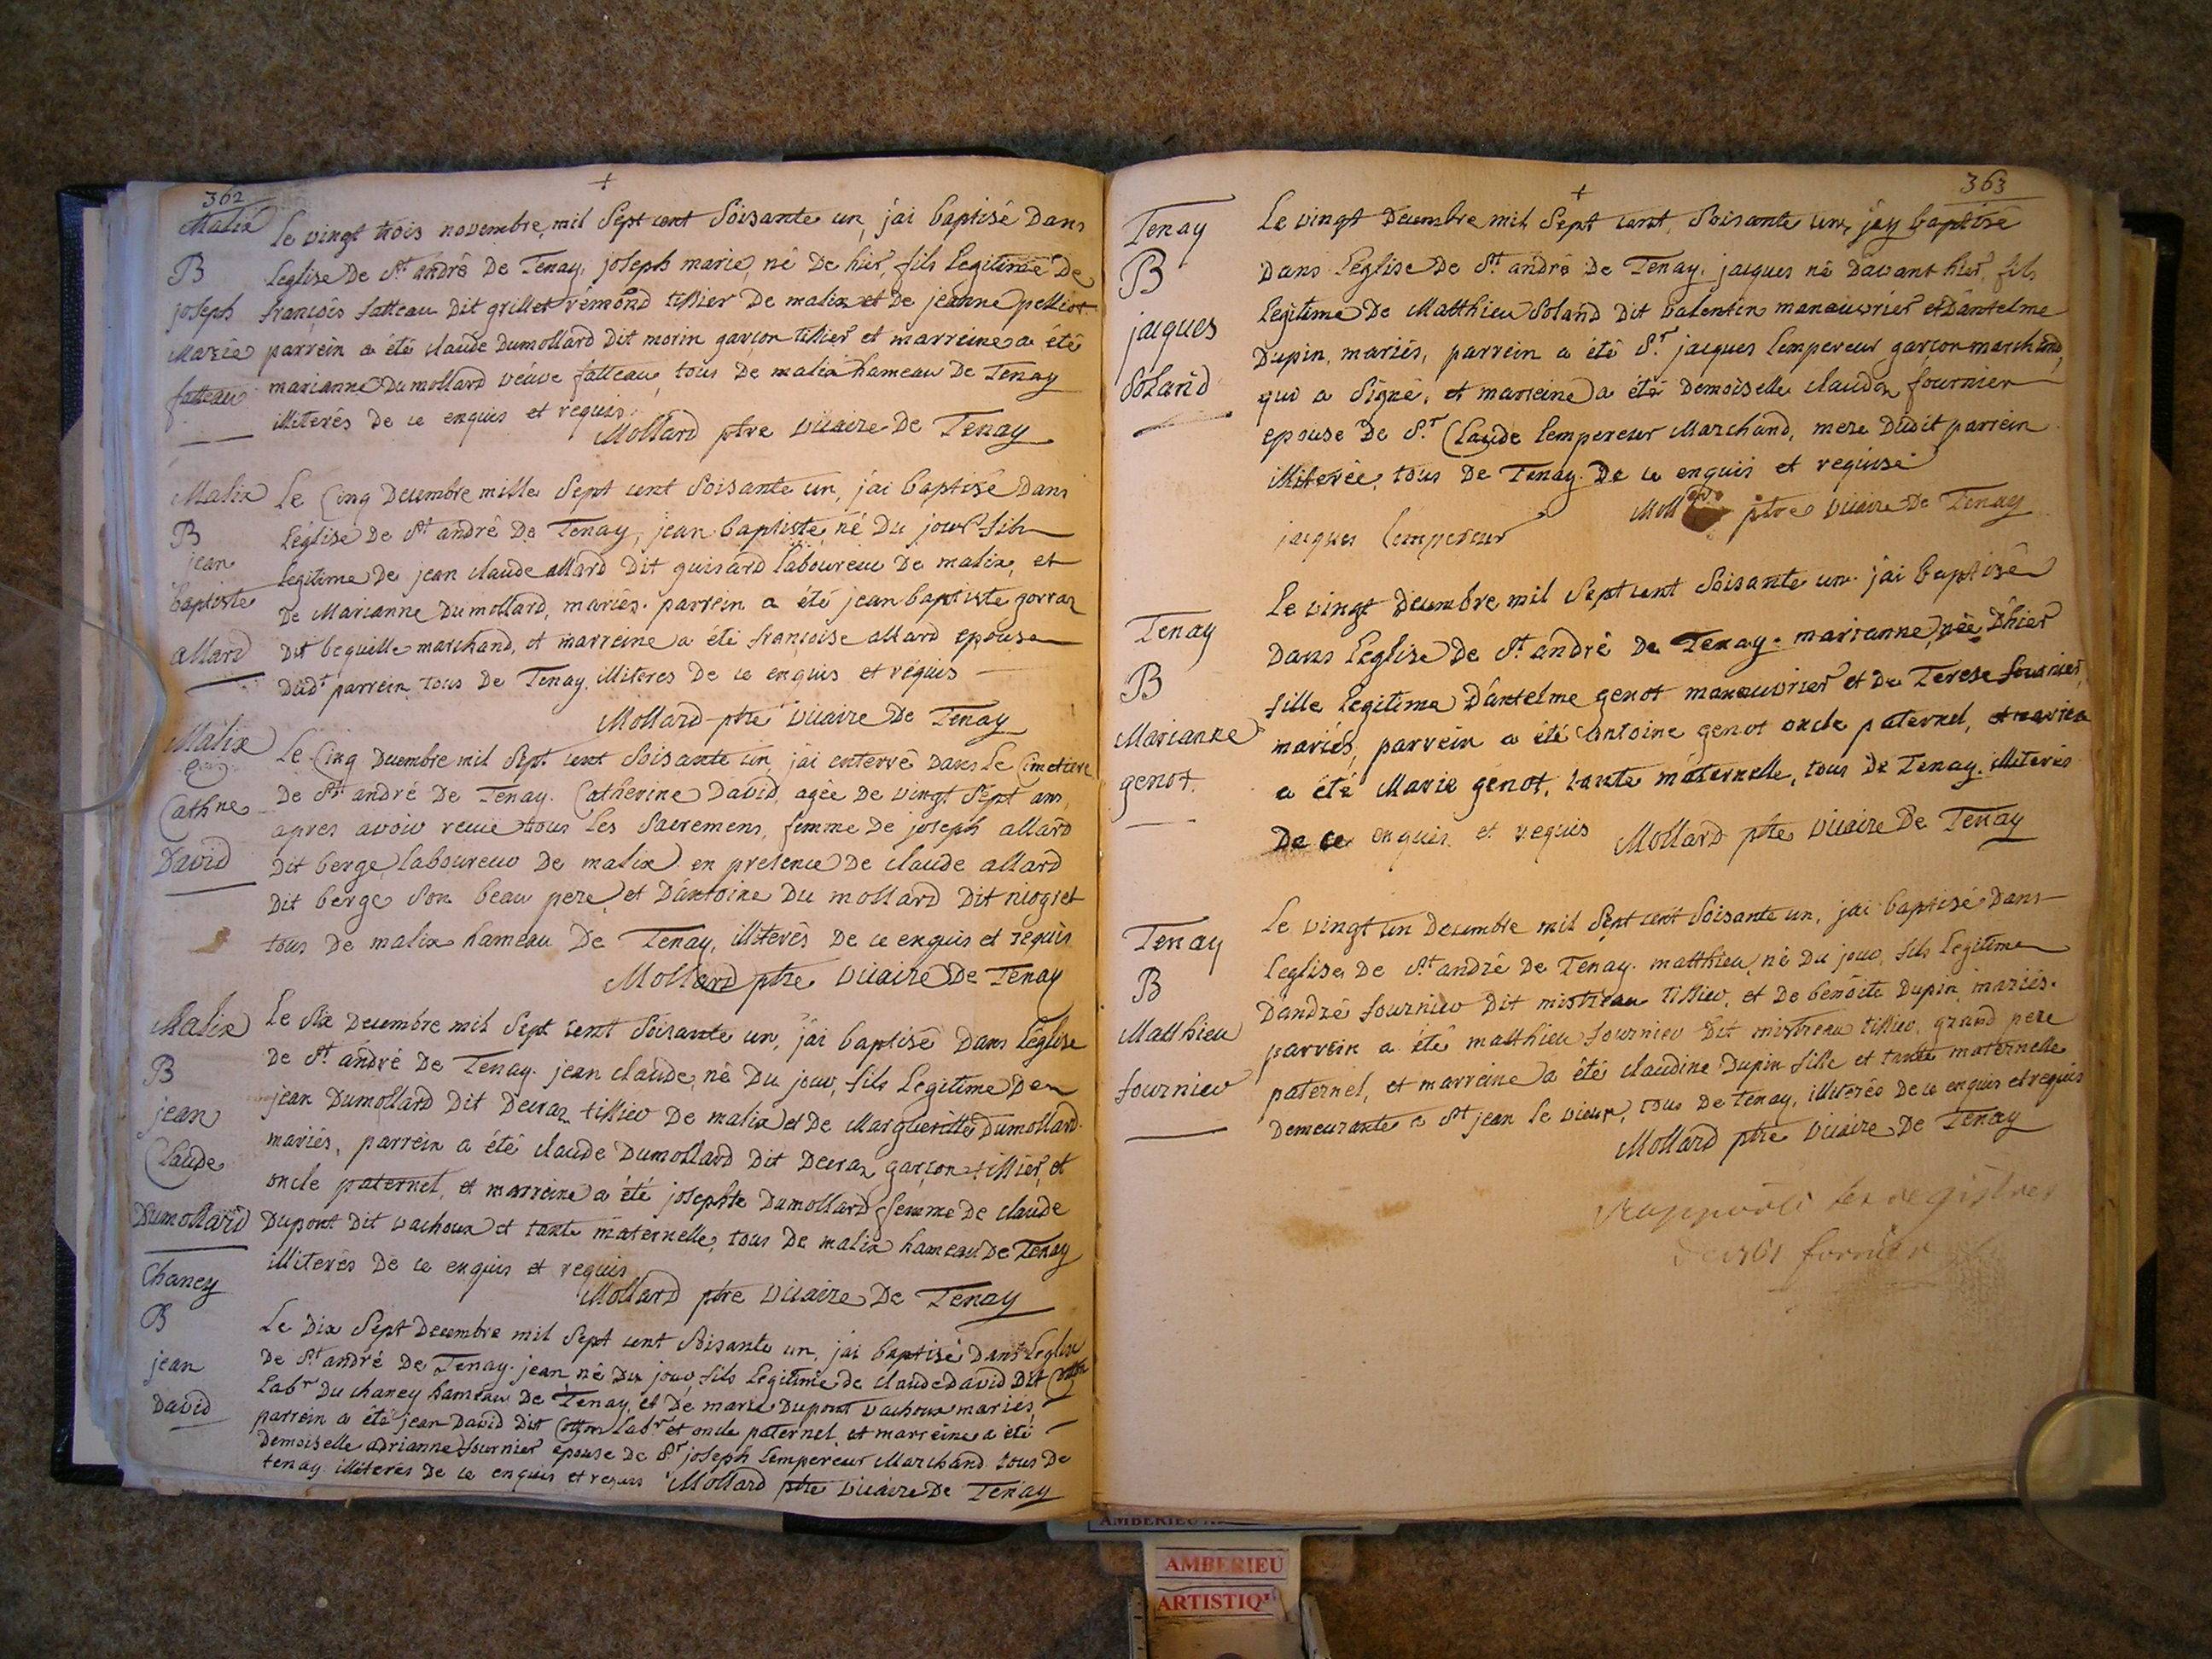 362
+
Malix
B
joseph
Marie
fatteau
Le vingt trois novembre, mil Sept cent Soisante un, j'ai baptisé Dans
leglise De St andré De Tenay, joseph marie, né De hier, fils legitime De
françois fatteau Dit grillet rémond tissier De malix et De jeanne pelliot
parrein a été claude Dumollard Dit morin garçon tissier et marreine a été
marianne Dumollard veuve fatteau, tous De malix hameau De Tenay
illiterés De ce enquis et requis
Mollard ptre vicaire De Tenay
Malix
B
jean
baptiste
allard
Le Cinq Decembre mille Sept cent Soisante un, j'ai baptisé Dans
l'église De St andré De Tenay, jean baptiste, né Du jour fils
legitime De jean claude allard Dit guisard laboureur De malix, et
De Marianne Dumollard, mariés. parrein a été jean baptiste gorraz
Dit bequille marchand, et marreine a été françoise allard epouse
Dudt parrein tous De Tenay. illiteres De ce enquis et réquis
Mollard ptre vicaire De Tenay
Malix
Cathne
David
Le Cinq Decembre mil Sept cent Soisante un, j'ai enterré Dans le Cimetiere
De St andré De Tenay. Catherine David, agée De vingt Sept ans,
apres avoir recue tous les Sacremens, femme De joseph allard
Dit berge, laboureur De malix en presence De claude allard
Dit berge Son beau pere, et D'antoine Du mollard Dit niogret
tous De malix hameau De Tenay, illiterés De ce enquis et requis
Mollard ptre vicaire De Tenay
Malix
B
jean
Claude
Dumollard
Le Six Decembre mil Sept cent Soisante un, j'ai baptisé Dans l'église
De St andré De Tenay. jean claude, né Du jour, fils legitime De
jean Dumollard Dit Decraz tissier De malix et De Marguerite Dumollard.
mariés, parrein a été claude Dumollard Dit Decraz garçon tissier, et
oncle paternel, et marreine a été josephte Dumollard femme De claude
Dupont Dit vachoux et tante maternelle, tous De malix hameau De Tenay
illiterés De ce enquis et requis
Mollard ptre vicaire De Tenay
Chaney
B
jean
David
Le Dix Sept Decembre mil Sept cent Soisante un, j'ai baptisé Dans l'eglise
De St andré De Tenay. jean, né Du jour, fils legitime de claude David Dit
labr Du chaney hameau De Tenay, et De marie Dupont vachoux mariés,
parrein a été jean David Dit labr et oncle paternel et marreine a été
Demoiselle adrianne fournier epouse De Sr joseph lempereur Marchand tous De
tenay. illiterés De ce enquis et requis Mollard ptre vicaire De Tenay
363
+
Tenay
B
jacques
Soland
Le vingt Decembre mil Sept cent, Soisante un, j'ay baptisé
Dans l'eglise De St andré De Tenay. jacques né D'avant hier, fils
legitime De Matthieu Soland Dit valentin manouvrier et D'antelme
Dupin, mariés, parrein a été Sr jacques lempereur garçon marchand,
qui a Signé, et marreine a été Demoiselle claudaz fournier
epouse De Sr Claude lempereur Marchand, mere Dudit parrein
illiterée, tous De Tenay. De ce enquis et requise
jacques lempereur
ptre vicaire De Tenay
Tenay
B
Marianne
genot.
Le vingt Decembre mil Sept cent Soisante un. j'ai baptisé
Dans l'eglise De St andré De Tenay. marianne, née D'hier
fille legitime D'antelme genot manouvrier et De Terese fournier,
mariés, parrein a été Antoine genot oncle paternel,
a été Marie genot, tante maternelle, tous De Tenay. illiterés
De ce enquis et requis Mollard ptre vicaire De Tenay
Tenay
B
Matthieu
fournier
Le vingt un Decembre mil Sept cent Soisante un, j'ai baptisé Dans
l'eglise De St andré De Tenay. matthieu, né Du jour, fils legitime
D'andré fournier Dit mistreau tissier, et De benoite Dupin, mariés.
parrein a été matthieu fournier Dit mistreau tissier, grand pere
paternel, et marreine a été claudine Dupin fille et tante maternelle
Demeurante a St jean le vieux, tous De tenay, illiterés De ce enquis et requis
Mollard ptre vicaire De Tenay
les registres
AMBERIEU
AMBERIEU
ARTISTIQ